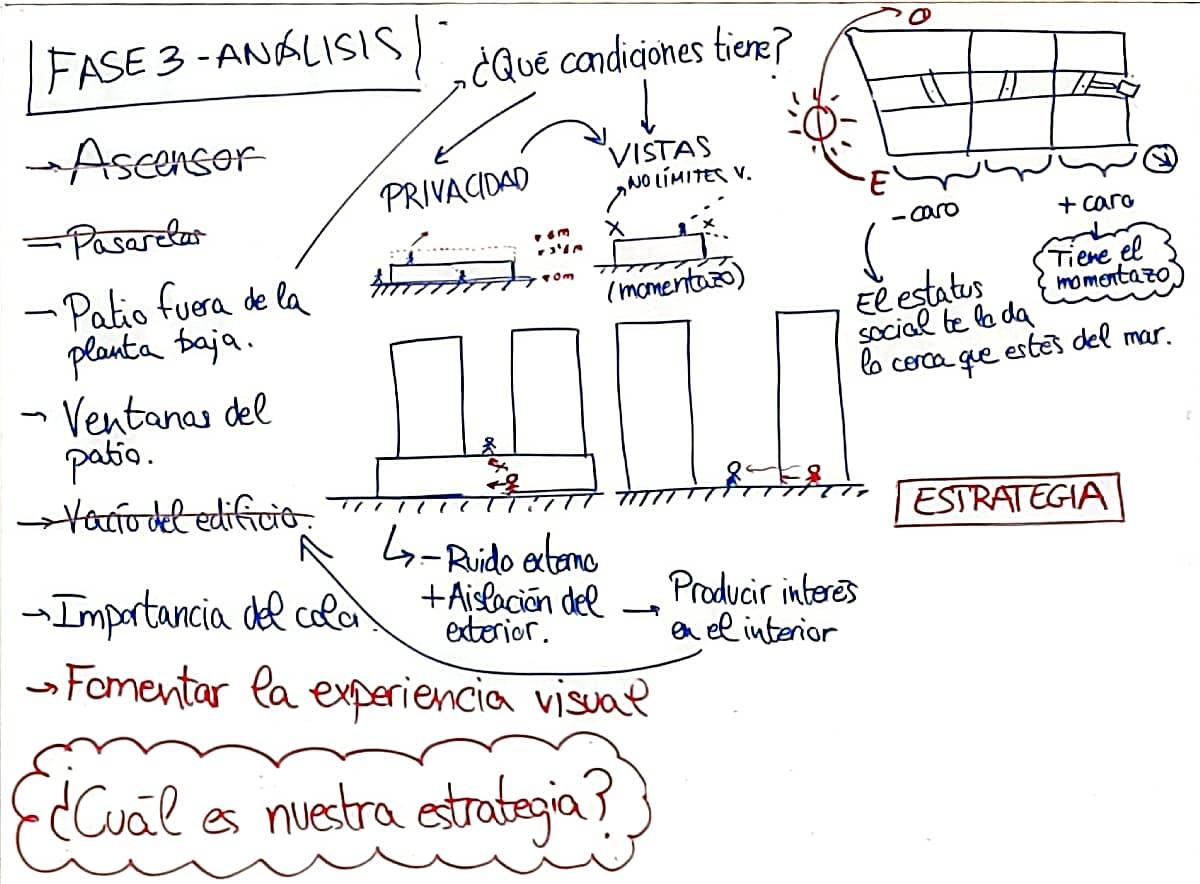 FASE 3 - ANÁLISIS
→ Ascensor
→ Pasarelas
→ Patio fuera de la
planta baja.
→ Ventanas del
patio.
→ Vacío del edificio.
→ Importancia del color.
→ Fomentar la experiencia visual
¿Cuál es nuestra estrategia?
¿Qué condiciones tiene?
PRIVACIDAD
VISTAS
NO LÍMITES V.
(momentazo)
- Ruido externo
+ Aislación del
exterior.
→ Producir interés
en el interior
O
E
- caro
+ caro
Tiene el
momentazo
El estatus
social te la da
lo cerca que estés del mar.
ESTRATEGIA